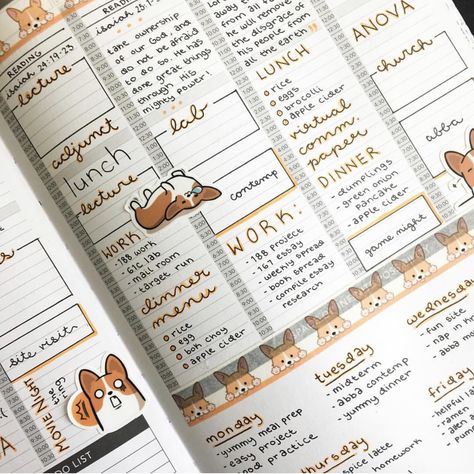 READING
isaiah 24:19-23
lecture
adjunct
lunch
lecture
WORK
- 188 work
- 616 lab
- mail room
- target run
dinner
menu
rice
egg
bok choy
apple cider
READING
isaiah 25:1-
take ownership
of our God, and
do not be afraid
to do so. He has
done great things
through his
mighty power!
lab
contemp
WORK:
- 188 project
- 167 essay
- weekly spread
- book spread
- compile essay
research
from all
he will remove
the disgrace of
his people from
all the earth"
LUNCH
rice
eggs
brocolli
apple cider
virtual
comm.
paper
DINNER
- dumplings
- green onion
pancake
- apple cider
ANOVA
church
abba
game night
site visit
MOVIE NIGHT
DO LIST
monday
- yummy meal prep
- easy project
- good practice
tuesday
- midterm
- abba contemp
- yummy dinner
thursday
wednesday
- fun site
- nap in
- abba
friday
- helpful